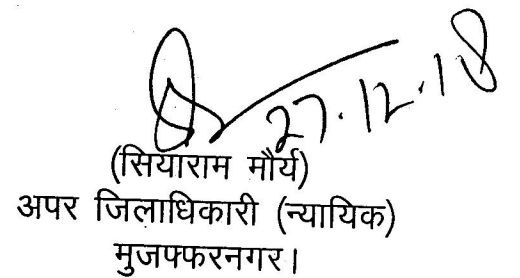 27.12.18
(सियाराम मौर्य)
अपर जिलाधिकारी (न्यायिक)
मुजफ्फरनगर।